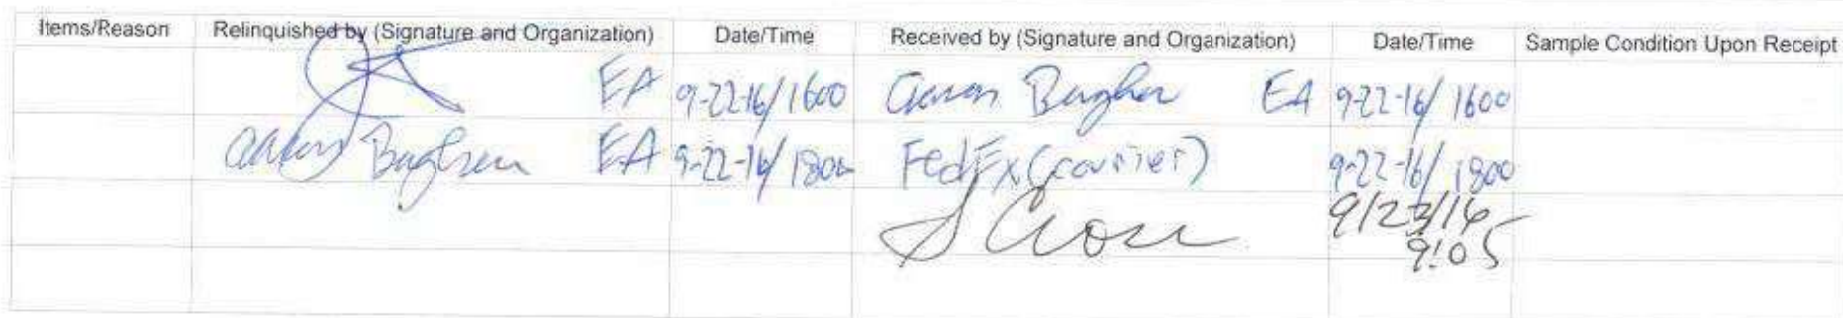 Items/Reason Relinquished by (Signature and Organization) Date/Time Received by (Signature and Organization) Date/Time Sample Condition Upon Receipt
EA 9-22-16/1600 Aaron EA 9-22-16/1600
Aaron EA 9-22-16/1800 FedEx (courier) 9-22-16/1800
9/23/16
9:05